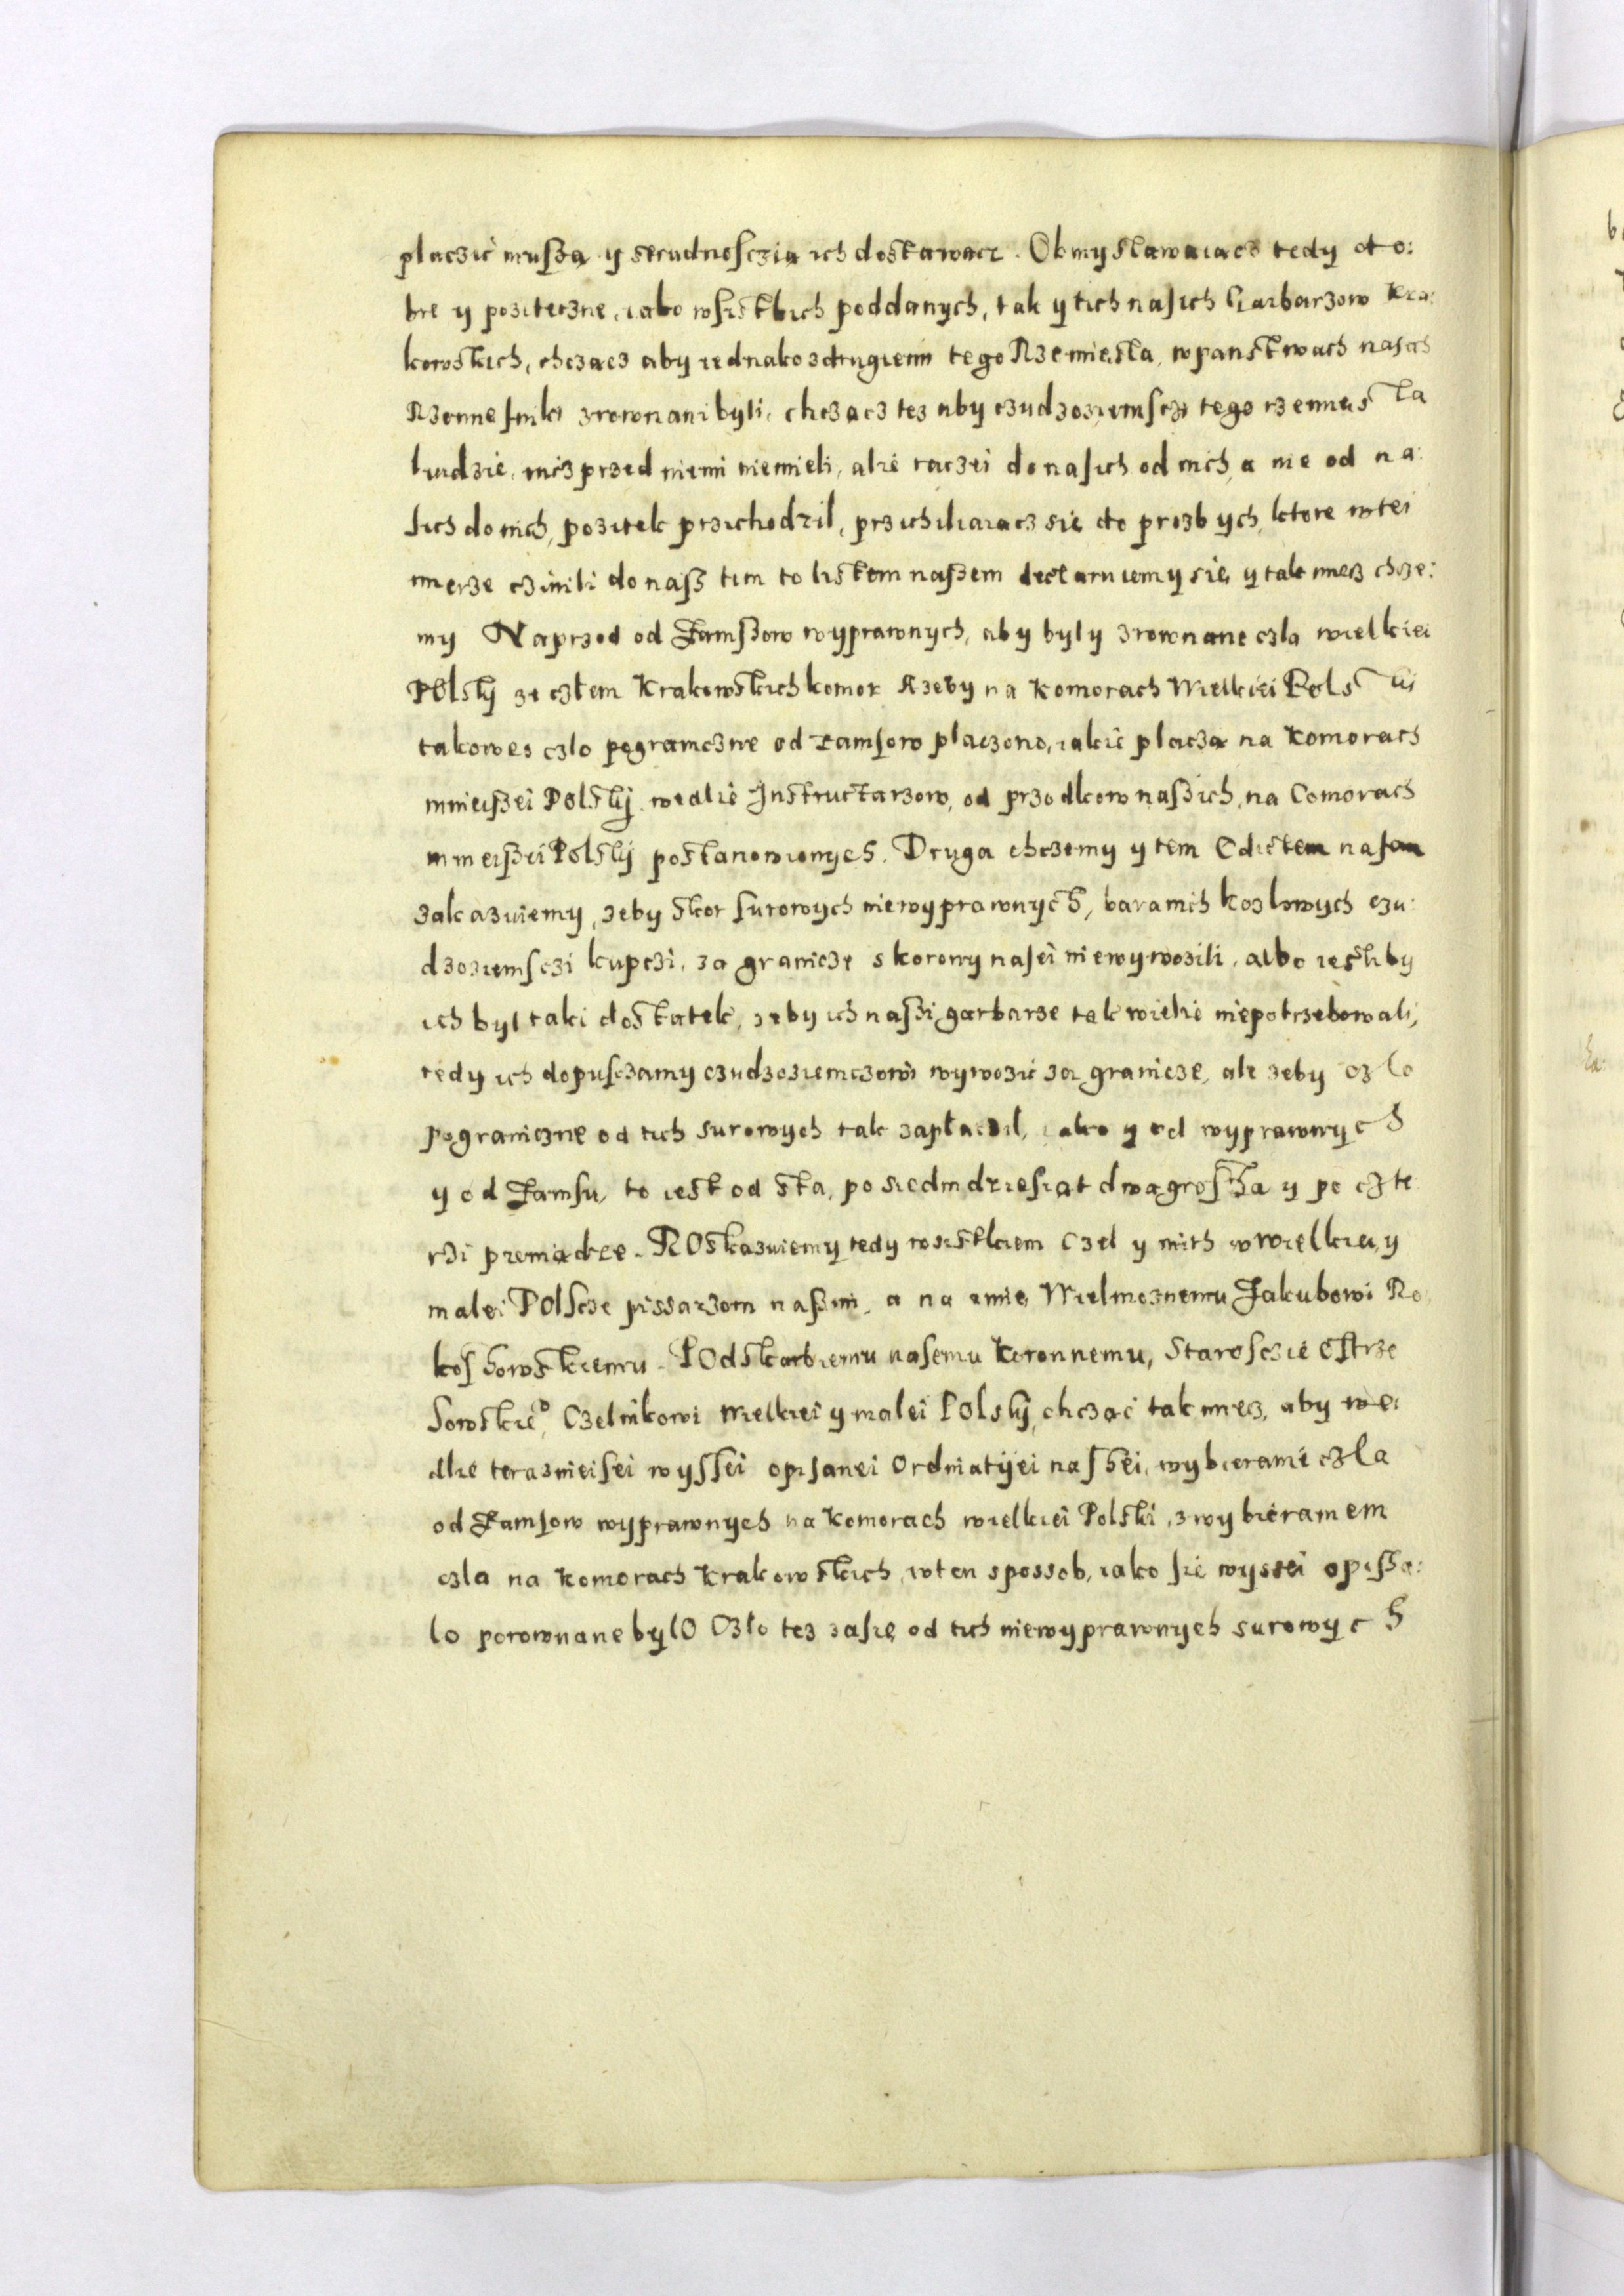 placzić muszą y strudnosczią ich dostawacz. Obmyslawaiacz tedy do:
bre y poziteczne, iako wsistkich poddanych, tak y tich nasich Garbarzow Kra:
kowskich, chczącz aby iednako zdrugiemi tego Rzemięsla, wpanstwach nasich
Rzemiesniki zrownani byli, chczącz tez aby czudzoziemsczi tego rzemięsla
ludzie, nicz przed niemi niemieli, alie raczei do nasich od nich, a nie od na:
sich do nich, pozitek przichodzil, przichiliaiacz sie do prozb ych, ktore wtei
mierze czinili do nasz tim to listem naszem declaruiemy sie, y tak miecz chcze:
my Naprzod od Zamszow wyprawnych, aby byly zrownane czla wielkiei
Polsky ze człem Krakowskich komor Rzeby na Komorach Wielkiei Polskij
takowes czlo pograniczne od zamsow placzono, iakie placza na Komorach
mnieiszei Polskij, wedlie Instructarzow, od przodkow naszich, na Comorach
mnieiszei Polskij postanowionych. Druga chczemy y tem Edictem nasem
zakazuiemy, zeby skor surowych niewyprawnych, baranich kozlowych czu:
dzoziemsczi kupczi, za granicze s korony nasei niewywozili, albo iesliby
ich byl taki dostatek, zeby ich naszi garbarze tak wielie niepotrzebowali,
tedy ich dopusczamy czudzoziemczowi wywozić za granicze, ale zeby czlo
pograniczne od tich surowych tak zaplaczil, iako y od wyprawnych
y od Zamsu, to iest od sta, po siedmdziesiąt dwa grosza y po czte
rzi pieniądze. Roskazuiemy tedy wsistkiem Czel y mith w wielkiei, y
malei Polscze pissarzom naszim, a na imie, Wielmoznemu Jakubowi Ro
kossowskiemu. Podskarbiemu nasemu Koronnemu, Starosczie Ostrze
sowskieo, Czelnikowi Wielkiei y malei Polsky, chcząc tak miecz, aby we
dlie terazmieisei wyssei opisanei Ordinatijei nasei, wybieranie czla
od Zamsow wyprawnych na Komorach wielkiei Polski, z wybieraniem
czla na Komorach Krakowskich, wten spossob, iako sie wyssei opisza:
lo porownane bylo Czlo tez zasie od tich niewyprawnych surowych